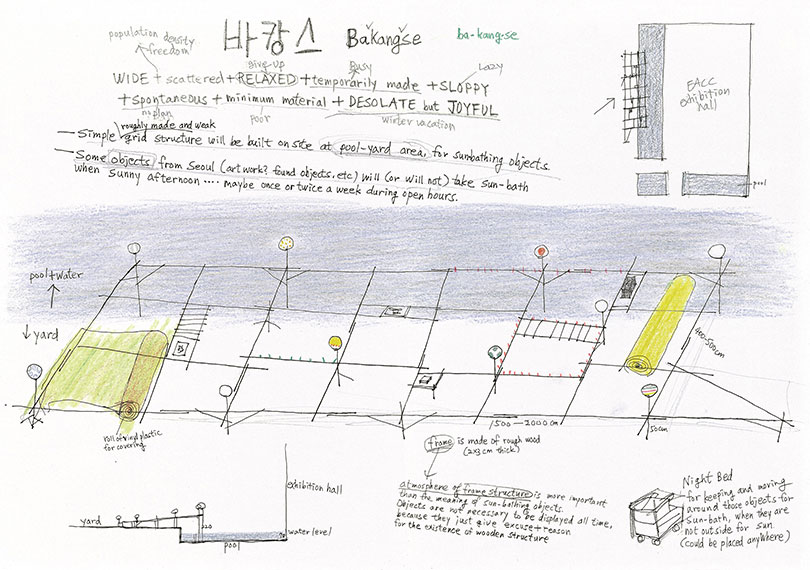 population density
freedom
바캉스 Bakangse ba-kang-se
give-up
busy
Lazy
WIDE + scattered + RELAXED + temporarily made + SLOPPY
+ spontaneous + minimum material + DESOLATE but JOYFUL
no plan
poor
winter vacation
roughly made and weak
— Simple grid structure will be built on site at pool-yard area, for sunbathing objects.
— Some objects from Seoul (art work? found objects. etc) will (or will not) take sun-bath
when sunny afternoon .... maybe once or twice a week during open hours.
EACC
exhibition
hall
pool
pool+water
yard
400-500cm
1500-2000cm
50cm
roll of vinyl plastic
for covering
frame is made of rough wood
(2x3cm thick)
atmosphere of frame structure is more important
than the meaning of sun-bathing objects.
Objects are not necessary to be displayed all time,
because they just give excuse+reason
for the existence of wooden structure
exhibition hall
yard
water level
pool
Night Bed
for keeping and moving
around those objects for
sun-bath, when they are
not outside for sun
(could be placed anywhere)